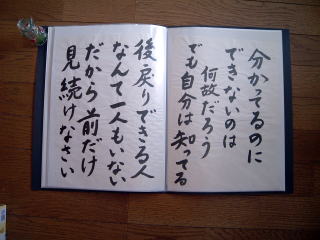 分かってるのに
できないのは
何故だろう
でも自分は知ってる
後戻りできる人
なんて一人もいない
だから前だけ
見続けなさい